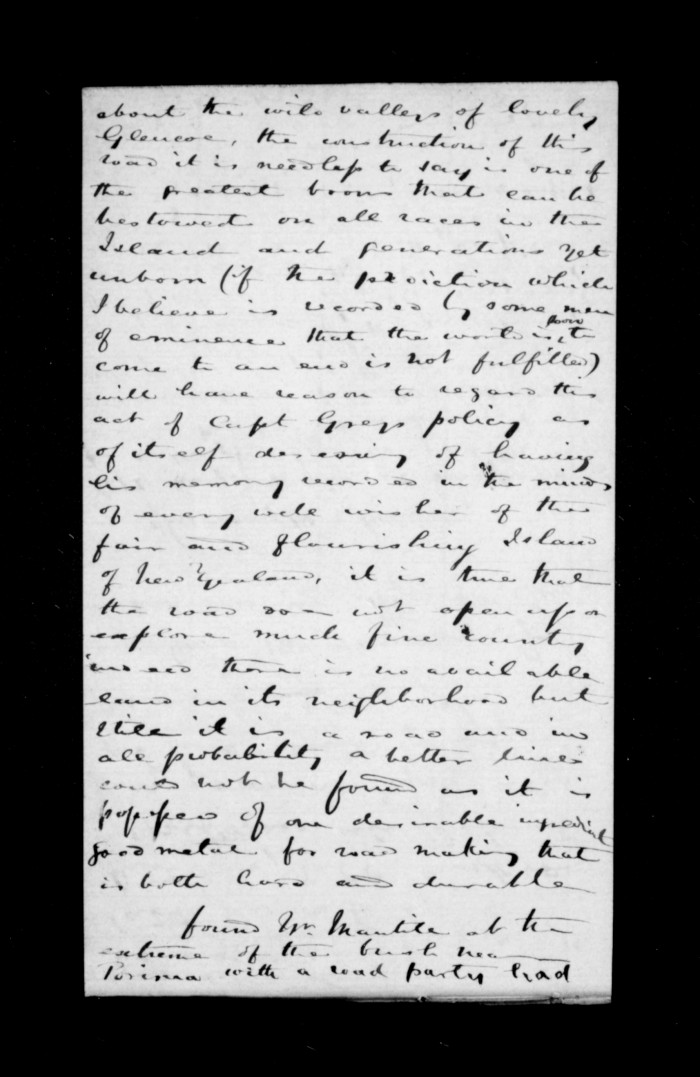 about the wild valleys of lovely
Glencoe, the construction of this
road it is needless to say is one of
the greatest boons that can be
bestowed on all races in the
Island and generations yet
unborn (if the prediction which
I believe is recorded by some men
of eminence that the world is soon to
come to an end is not fulfilled)
will have reason to regard this
act of Capt Greys policy as
of itself deserving of having
his memory recorded in the minds
of every well wisher of the
fair and flourishing Island
of New Zealand, it is true that
the road does not open up or
explore much fine country
indeed there is no available
land in its neighborhood but
still it is a road and in
all probability a better line
could not be found as it is
possessed of one desirable ingredient
good metal for road making that
is both hard and durable
found Mr. at the
extreme of the bush near
Porirua with a road party had